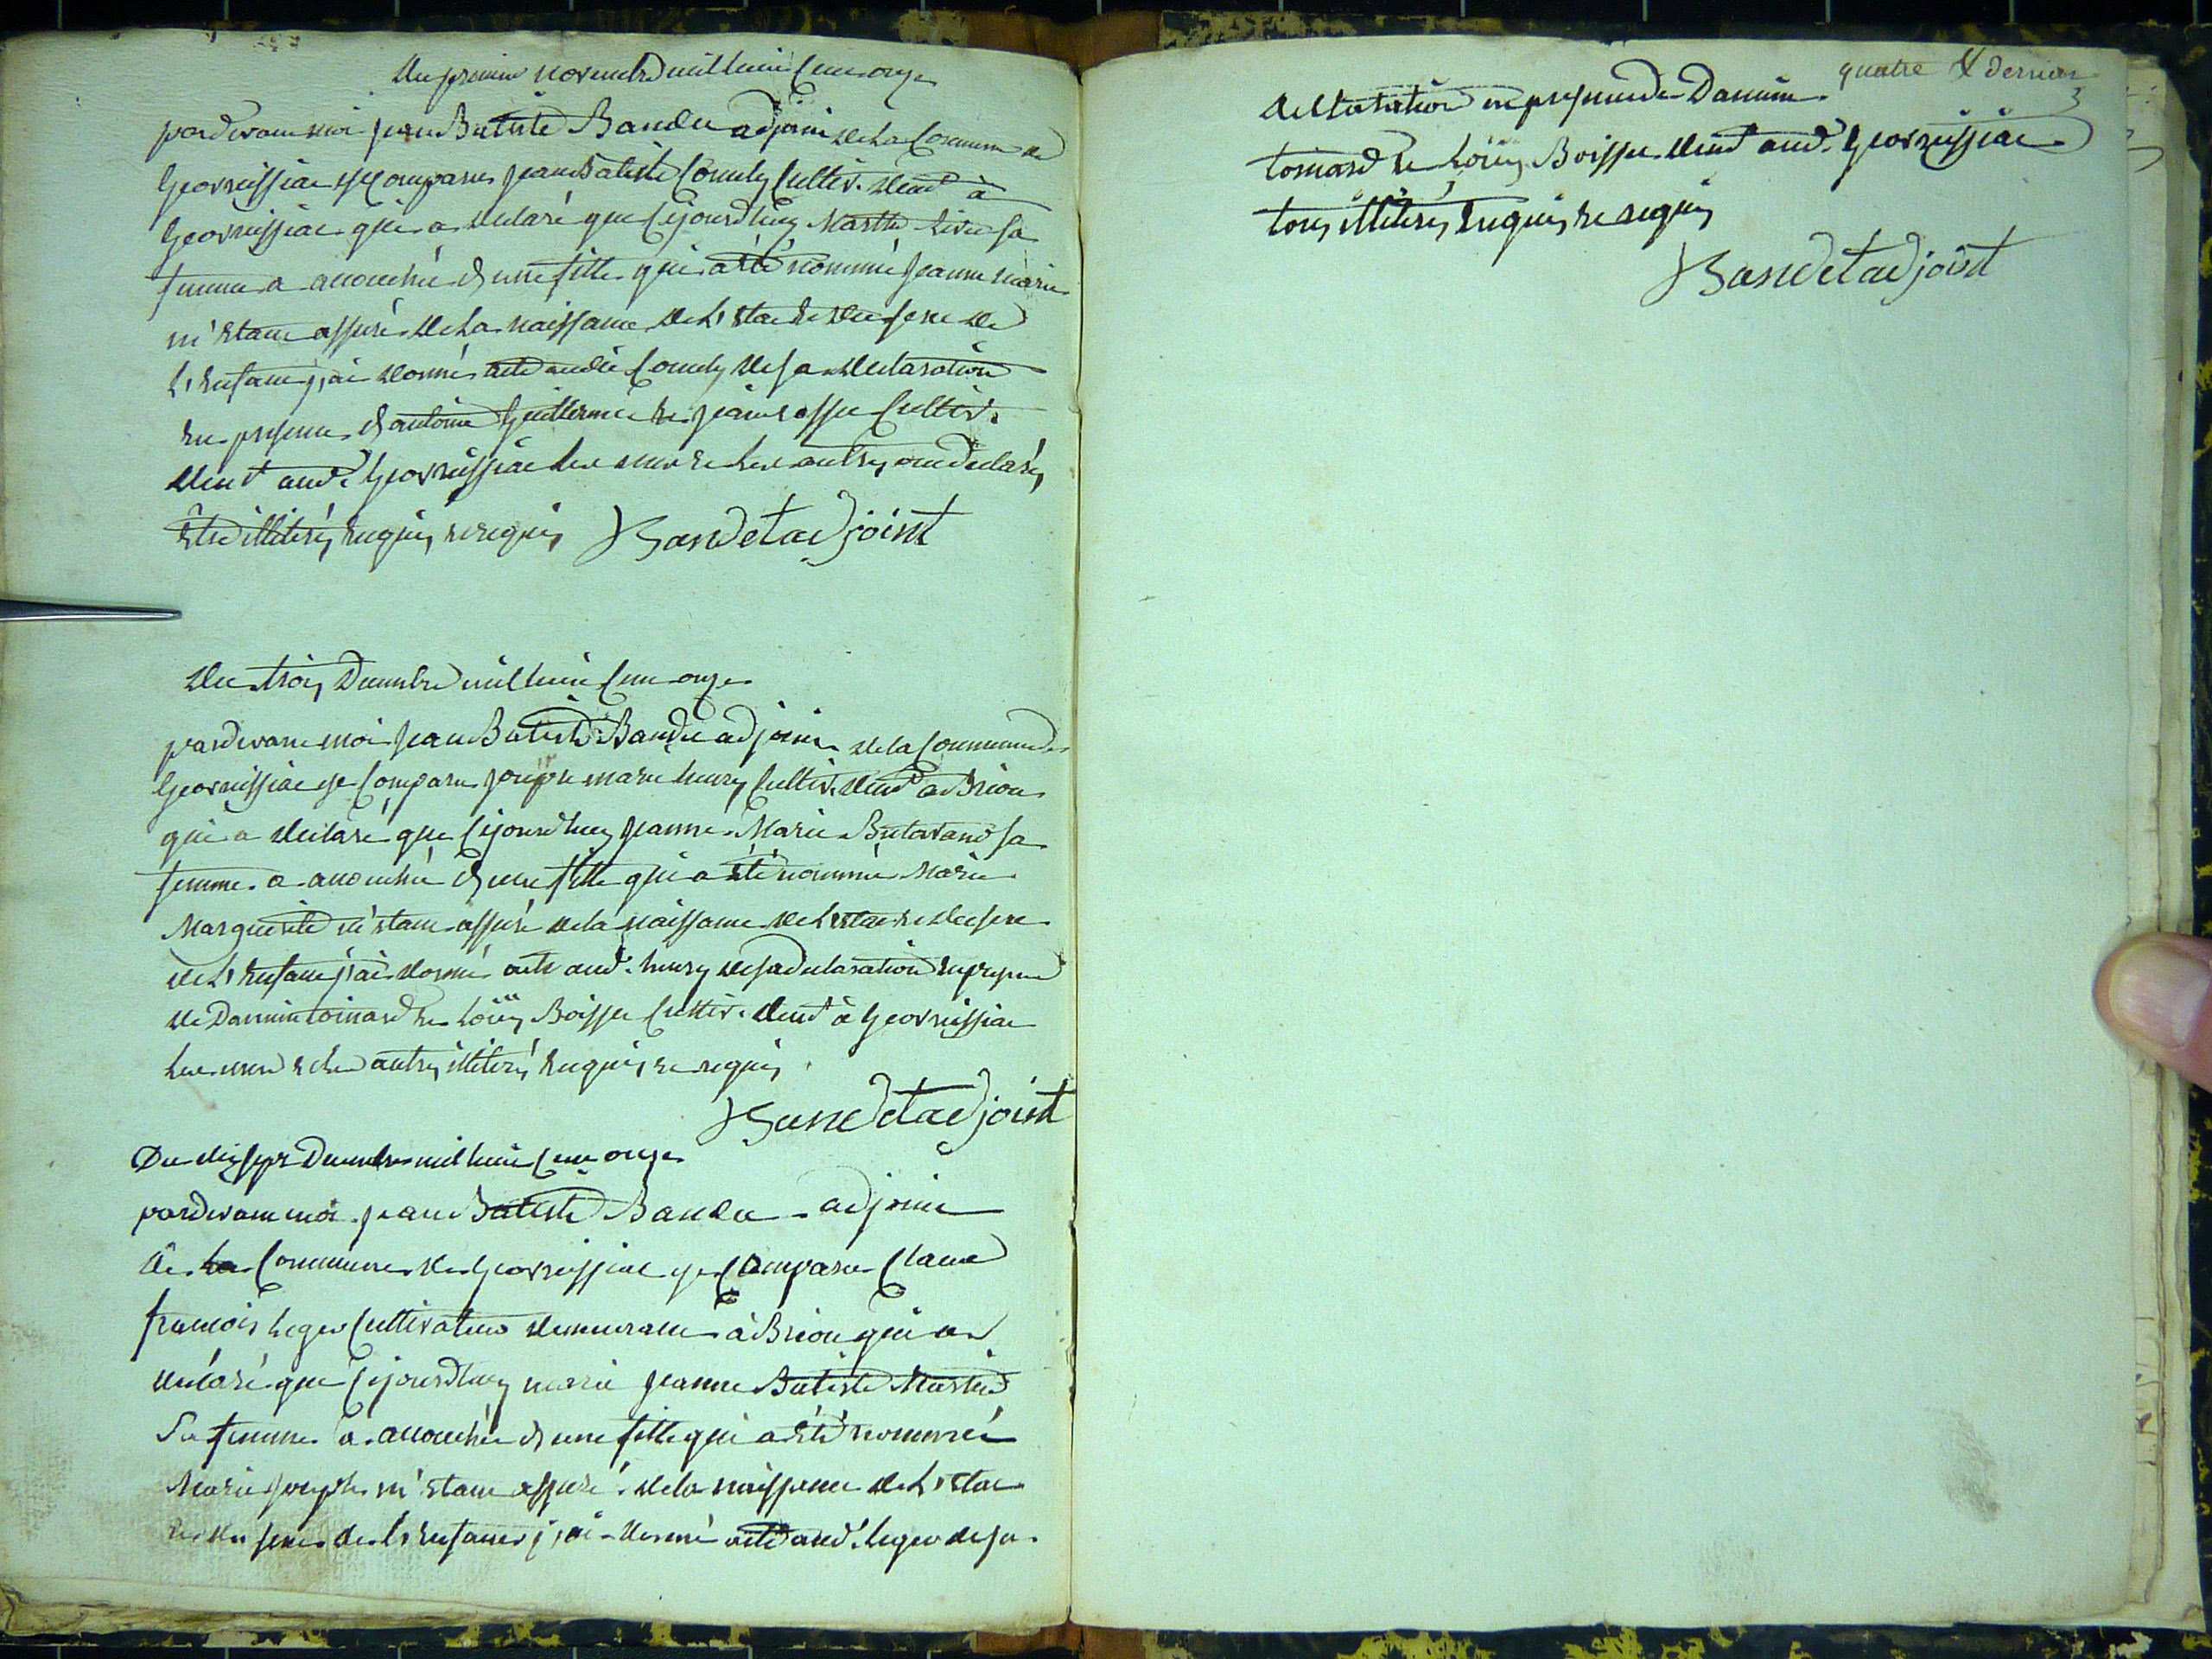 Du premier novembre mil huit cent onze
pardevant moi jean Batiste Bandet adjoint de la Commune de
Georeissiat est Comparu jean Batiste Comely Cultiv. demt à
Georeissiat qui a declaré que cejourdhuy Marthe sa
femme a accouchée d'une fille qui a été nommée jeanne marie
m'étant assuré de la naissance de l'état et du sexe de
l'enfant j'ai donné acte audit Comely de sa declaration
en presence d'antoine Guillermet et jean Cultiv.
demt aud. Georeissiat les uns et les autres ont declarés
être illitérés enquis et requis Bandet adjoint
Du trois Decembre mil huit cent onze
pardevant moi jean Batiste Bandet adjoint de la Commune de
Georeissiat est Comparu joseph marie henry Cultiv. demt a Brion
qui a declaré que cejourdhuy jeanne Marie Butavand sa
femme a accouchée d'une fille qui a été nommée Marie
Marguerite m'étant assuré de la naissance de l'état et du sexe
de l'enfant j'ai donné acte aud. henry de sa declaration en presence
de Dannin toinard et Loüis Boisson Cultiv. demt à Georeissiat
les uns et les autres illitérés enquis et requis
Bandet adjoint
Du dix sept Decembre mil huit cent onze
pardevant moi jean Batiste Bandet adjoint
de la Commune de Georeissiat est Comparu Claude
francois Leger Cultivateur demeurant à Brion qui a
declaré que cejourdhuy marie jeanne Batiste
Sa femme a accouchée d'une fille qui a été nommée
Marie joseph m'étant assuré de la naissance de l'état
et du sexe de l'enfant j'ai donné acte aud. Leger de sa
quatre & dernier
3
declaration en presence de Dannin
toinard et Loüis Boisson demt aud. Georeissiat
tous illitérés enquis et requis
Bandet adjoint